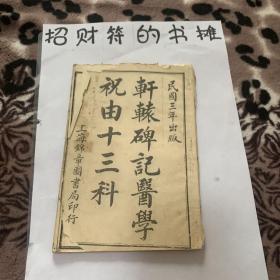 招财符的书摊
民國三年出版
軒轅碑記醫學
祝由十三科
上海錦章圖書局印行